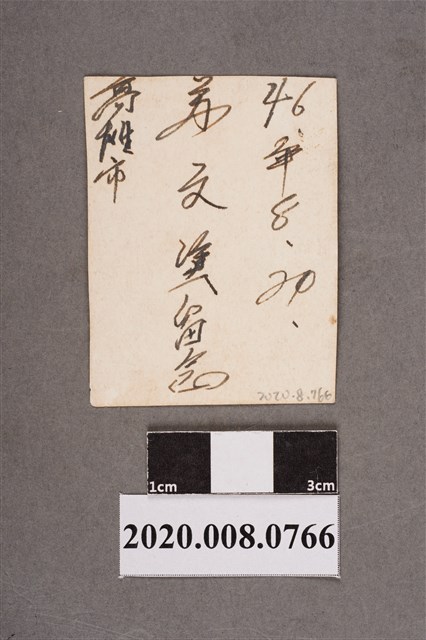 46年8、20、
苏文塗留念
高雄市
2020.8.766
1cm 3cm
2020.008.0766